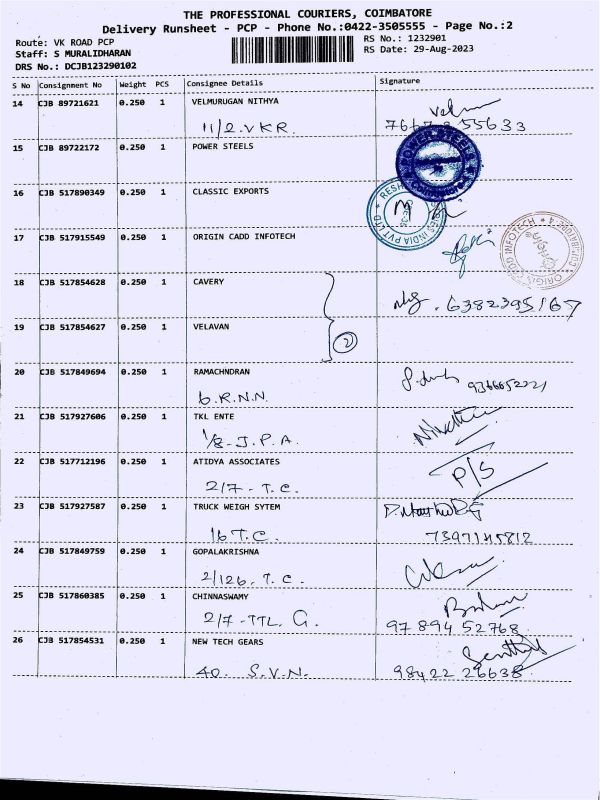 THE PROFESSIONAL COURIERS, COIMBATORE
Delivery Runsheet - PCP - Phone No.:0422-3505555 - Page No.:2
Route: VK ROAD PCP
Staff: S MURALIDHARAN
DRS No.: DCJB123290102
RS No.: 1232901
RS Date: 29-Aug-2023
S No Consignment No Weight PCS Consignee Details Signature
14 CJB 89721621 0.250 1 VELMURUGAN NITHYA
11/2.VKR.
15 CJB 89722172 0.250 1 POWER STEELS
POWER STEELS
16 CJB 517890349 0.250 1 CLASSIC EXPORTS
17 CJB 517915549 0.250 1 ORIGIN CADD INFOTECH
ORIGIN CADD INFOTECH
18 CJB 517854628 0.250 1 CAVERY
6382395167
19 CJB 517854627 0.250 1 VELAVAN
2
20 CJB 517849694 0.250 1 RAMACHNDRAN
6.R.N.N.
21 CJB 517927606 0.250 1 TKL ENTE
1/8-J.P.A.
22 CJB 517712196 0.250 1 ATIDYA ASSOCIATES
2/7-T.C. P/S
23 CJB 517927587 0.250 1 TRUCK WEIGH SYTEM
16 T.C. 7397145812
24 CJB 517849759 0.250 1 GOPALAKRISHNA
2/126.T.C.
25 CJB 517860385 0.250 1 CHINNASWAMY
2/7-TTL G. 97894 52768
26 CJB 517854531 0.250 1 NEW TECH GEARS
40. S.V.N. 98422 26638